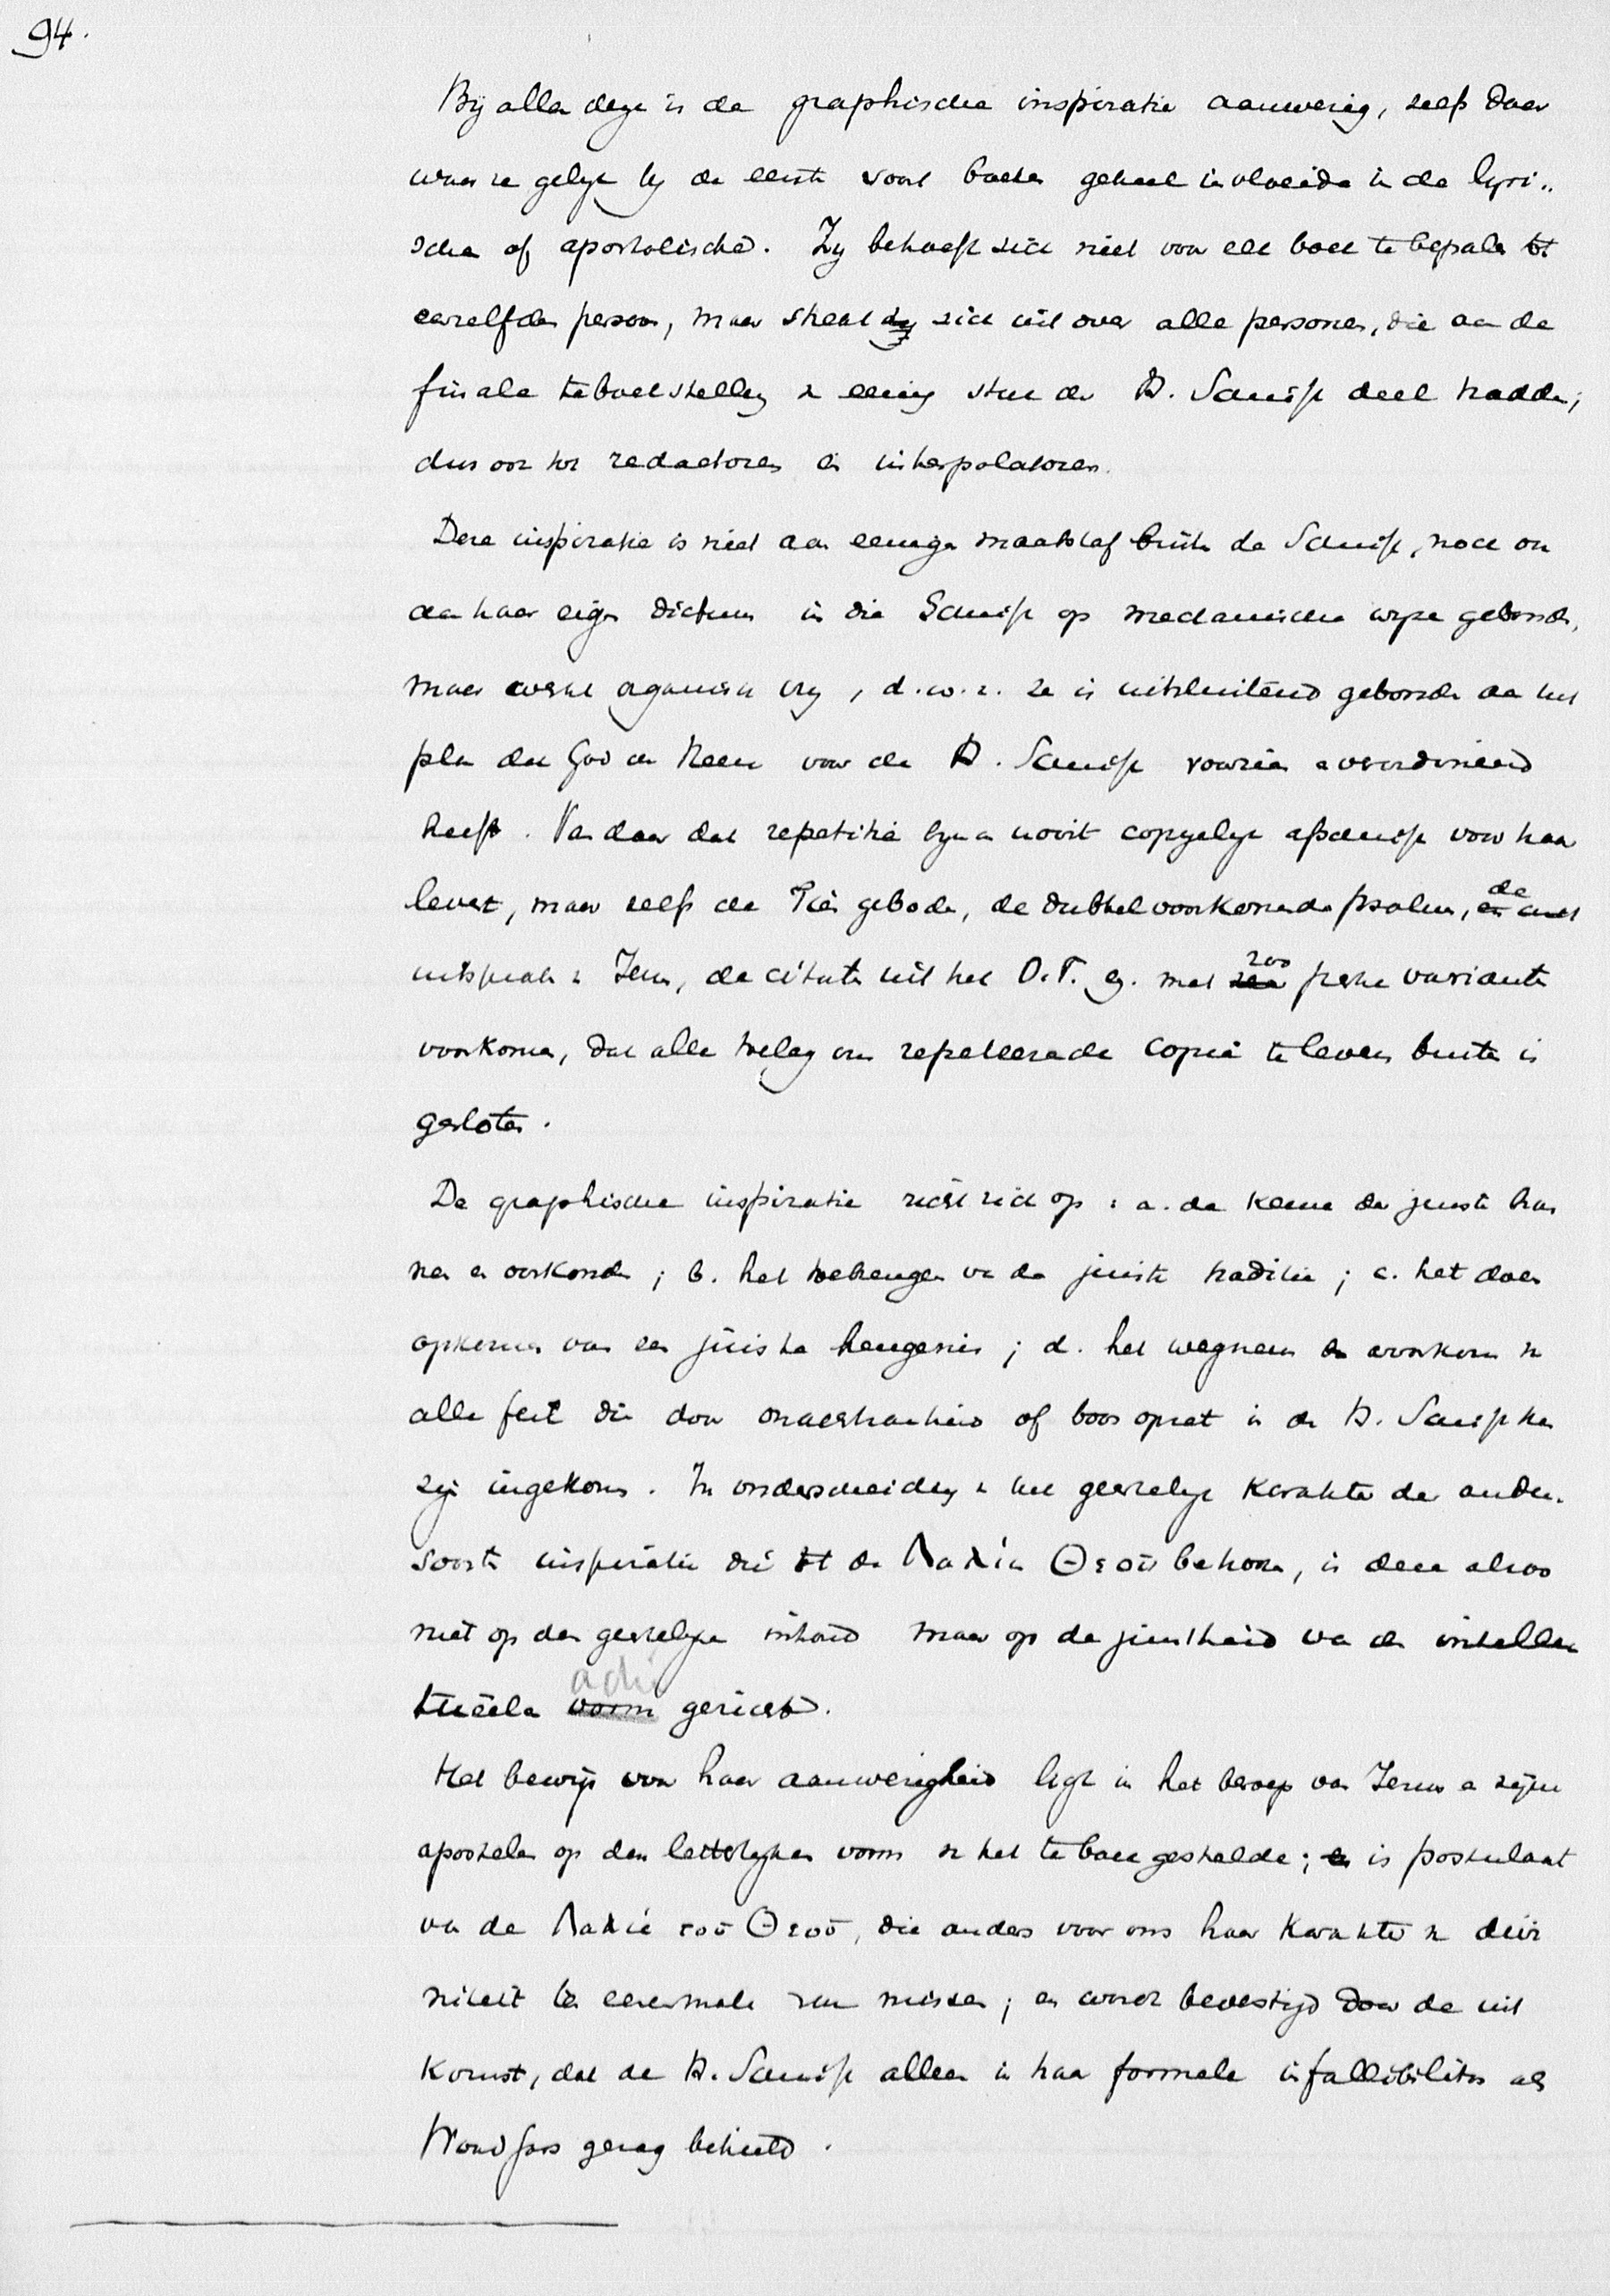 94.
Bij alle deze is de graphische inspiratie aanwezig, zelfs daar
waar ze gelijk bij de eerste soort boeken geheel invloeide in de lyri„
sche of apostolische. Zij behoeft zich niet voor elk boek te bepalen tot
eenzelfden persoon, maar strekt zich uit over alle personen, die aan de
finale teboekstelling v. eenig stuk der H. Schrift deel hadden;
dus ook tot redactoren en interpolatoren.
Deze inspiratie is niet aan eenigen maatstaf buiten de Schrift, noch ook
aan haar eigen dictum in die Schrift op mechanische wijze gebonden,
maar werkt organisch vrij, d.w.z. ze is uitsluitend gebonden aan het
plan dat God de Heere voor de H. Schrift voorzien en verordineerd
heeft. Van daar dat repetitie bijna nooit copyelijk afschrift voor haar
levert, maar zelfs de Tien geboden, de dubbel voorkomende psalmen, de
uitspraken v. Jezus, de citaten uit het O.T. eg. met zoo sterke varianten
voorkomen, dat alle toeleg om repeteerende copie te leveren buiten is
gesloten.
De graphische inspiratie richt zich op: a. de keuze der juiste bron
nen en oorkonden; b. het toebrengen van de juiste traditie; c. het doen
opkomen van een juiste heugenis; d. het wegnemen en voorkomen v.
alle feil die door onachtzaamheid of boos opzet in de H. Schrift kon
zijn ingekomen. In onderscheiding v. het geestelijk karakter der andere
soorten inspiratie die tot de Λαλία Θεοῦ behooren, is deze alzoo
niet op den geestelijken inhoud maar op de juistheid van den intellec
tueele vorm gericht.
Het bewijs voor haar aanwezigheid ligt in het beroep van Jezus en zijne
apostelen op den letterlijken vorm v. het te boek gestelde; is postulaat
van de Λαλιά τοῦ Θεοῦ, die anders voor ons haar karakter v. divi
niteit ten eenenmale zou missen; en wordt bevestigd door de uit
komst, dat de H. Schrift alleen in haar formele infallibiliteit als
Woord Gods gezag behield.